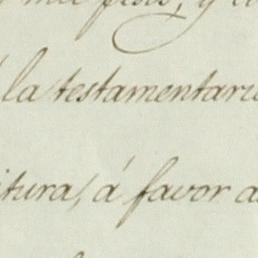 mil pesos, y
á la testamentaria
itura, á favor d